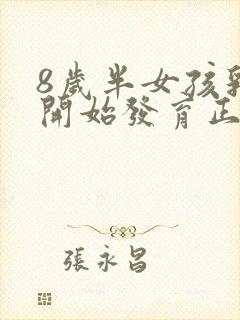 8歲半女孩乳
開始發育正
張永昌